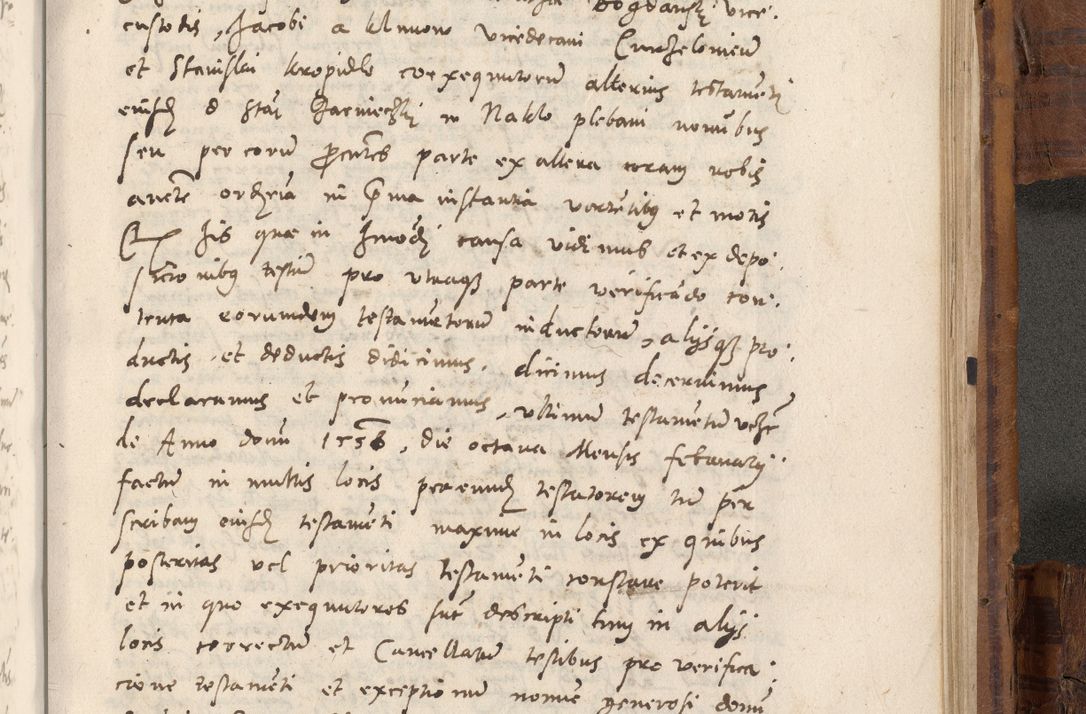 Bogdansky vice
custodis, Jacobi a Unuow vicedecani Curzeloniens
et Stanislai Kropidlo coexequutorum alterius testamenti
eiusdem d Stan Jarniechki in Naklo plebani nominibus
seu per eorum procuratores parte ex altera coram nobis
auctoritate ordinaria in prima instantia vertentibus et motis
Quia his quæ in huiusmodi causa vidimus et ex depo
sicionibus testium pro utraque parte verificando con
tenta eorumdem testamentorum inductorum, alijsque pro
ductis et deductis didicimus, dicimus decernimus
declaramus et pronunciamus, ultimum testamentum
de Anno domini 1556, die octava Mensis februarij
factum in multis locis per eundem testatorem tum per
scribam eiusdem testamenti maxime in locis ex quibus
posteritas vel prioritas testamenti constare poterit
et in quo exequutores sunt descripti tum in alijs
locis correctum et Cancellatum testibus pro verifica
cione testamenti et exceptionum nomine generosi domini